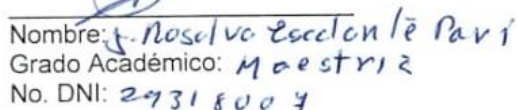 Nombre: J. Rosalva Escalante Pari
Grado Académico: Maestriz
No. DNI: 29318004